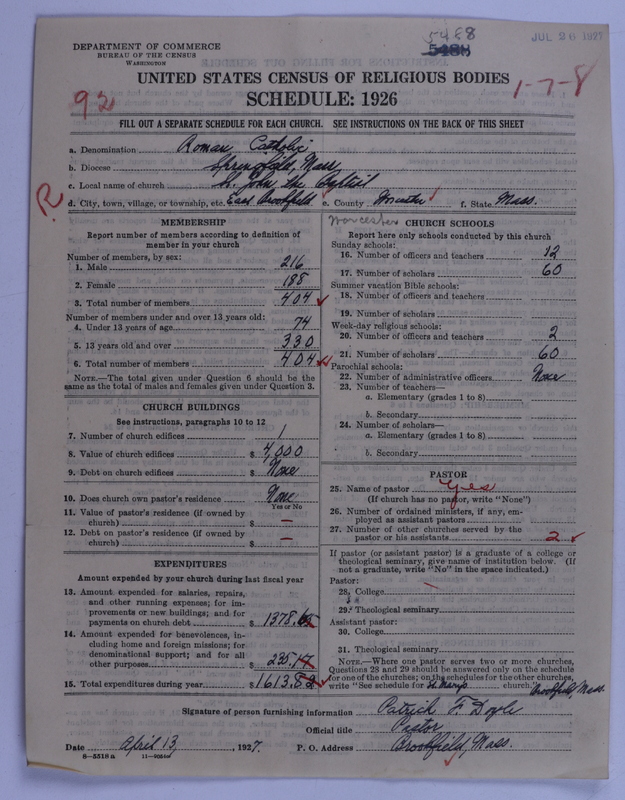 5488
5488
JUL 26 1927
DEPARTMENT OF COMMERCE
BUREAU OF THE CENSUS
WASHINGTON
UNITED STATES CENSUS OF RELIGIOUS BODIES
SCHEDULE: 1926
92
1-7-8
FILL OUT A SEPARATE SCHEDULE FOR EACH CHURCH. SEE INSTRUCTIONS ON THE BACK OF THIS SHEET
a. Denomination Roman Catholic
b. Diocese Springfield, Mass
c. Local name of church St. John the Baptist
R
d. City, town, village, or township, etc. East Brookfield e. County Worcester f. State Mass.
Worcester
MEMBERSHIP
Report number of members according to definition of
member in your church
Number of members, by sex:
1. Male 216
2. Female 188
3. Total number of members 404
Number of members under and over 13 years old:
4. Under 13 years of age 74
5. 13 years old and over 330
6. Total number of members 404
NOTE.—The total given under Question 6 should be the
same as the total of males and females given under Question 3.
CHURCH BUILDINGS
See instructions, paragraphs 10 to 12
7. Number of church edifices 1
8. Value of church edifices $ 4,000
9. Debt on church edifices $ None
10. Does church own pastor's residence None
Yes or No
11. Value of pastor's residence (if owned by
church) $ —
12. Debt on pastor's residence (if owned by
church) $ —
EXPENDITURES
Amount expended by your church during last fiscal year
13. Amount expended for salaries, repairs,
and other running expenses; for im-
provements or new buildings; and for
payments on church debt $ 1378.65
14. Amount expended for benevolences, in-
cluding home and foreign missions; for
denominational support; and for all
other purposes $ 235.17
15. Total expenditures during year $ 1613.82
CHURCH SCHOOLS
Report here only schools conducted by this church
Sunday schools:
16. Number of officers and teachers 12
17. Number of scholars 60
Summer vacation Bible schools:
18. Number of officers and teachers
19. Number of scholars
Week-day religious schools:
20. Number of officers and teachers 2
21. Number of scholars 60
Parochial schools:
22. Number of administrative officers None
23. Number of teachers—
a. Elementary (grades 1 to 8)
b. Secondary
24. Number of scholars—
a. Elementary (grades 1 to 8)
b. Secondary
PASTOR
25. Name of pastor Yes
(If church has no pastor, write "None")
26. Number of ordained ministers, if any, em-
ployed as assistant pastors
27. Number of other churches served by the
pastor or his assistants 2
If pastor (or assistant pastor) is a graduate of a college or
theological seminary, give name of institution below. (If
not a graduate, write "No" in the space indicated.)
Pastor:
28. College
29. Theological seminary
Assistant pastor:
30. College
31. Theological seminary
NOTE.—Where one pastor serves two or more churches,
Questions 28 and 29 should be answered only on the schedule
for one of the churches; on the schedules for the other churches,
write "See schedule for St Marys church." Brookfield, Mass.
Signature of person furnishing information Patrick F. Doyle
Official title Pastor
Date April 13, 1927. P. O. Address Brookfield, Mass.
8—5518a